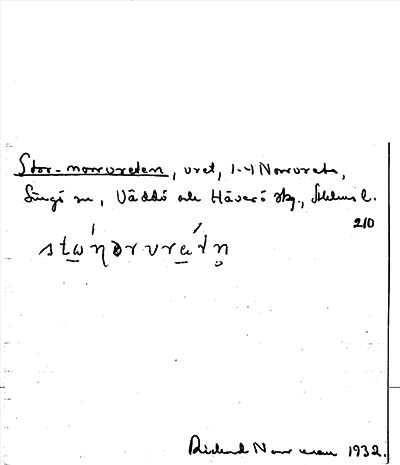 Stor-norrvreten, vret, 1-4 Norrvreta,
Singö sn, Väddö och Häverö skg., Sthlms l.
210
Rickard Norrman 1932.